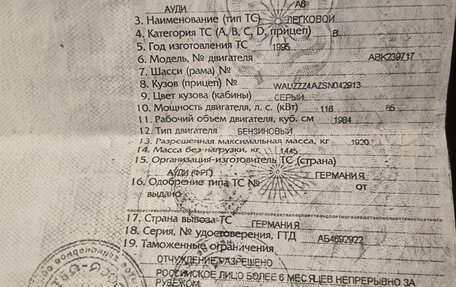 АУДИ А6
3. Наименование (тип ТС) ЛЕГКОВОЙ
4. Категория ТС (А, В, С, D, прицеп) В
5. Год изготовления ТС 1995
6. Модель, № двигателя АВК239717
7. Шасси (рама) №
8. Кузов (прицеп) № WAUZZZ4AZSN042913
9. Цвет кузова (кабины) СЕРЫЙ
10. Мощность двигателя, л. с. (кВт) 116 85
11. Рабочий объем двигателя, куб. см 1984
12. Тип двигателя БЕНЗИНОВЫЙ
13. Разрешенная максимальная масса, кг 1920
14. Масса без нагрузки, кг 1445
15. Организация-изготовитель ТС (страна)
АУДИ (ФРГ) ГЕРМАНИЯ
16. Одобрение типа ТС № ОТ
выдано
17. Страна вывоза ТС ГЕРМАНИЯ
18. Серия, № удостоверения, ГТД АБ4692922
19. Таможенные ограничения
ОТЧУЖДЕНИЕ РАЗРЕШЕНО
РОССИЙСКОЕ ЛИЦО БОЛЕЕ 6 МЕСЯЦЕВ НЕПРЕРЫВНО ЗА
РУБЕЖОМ